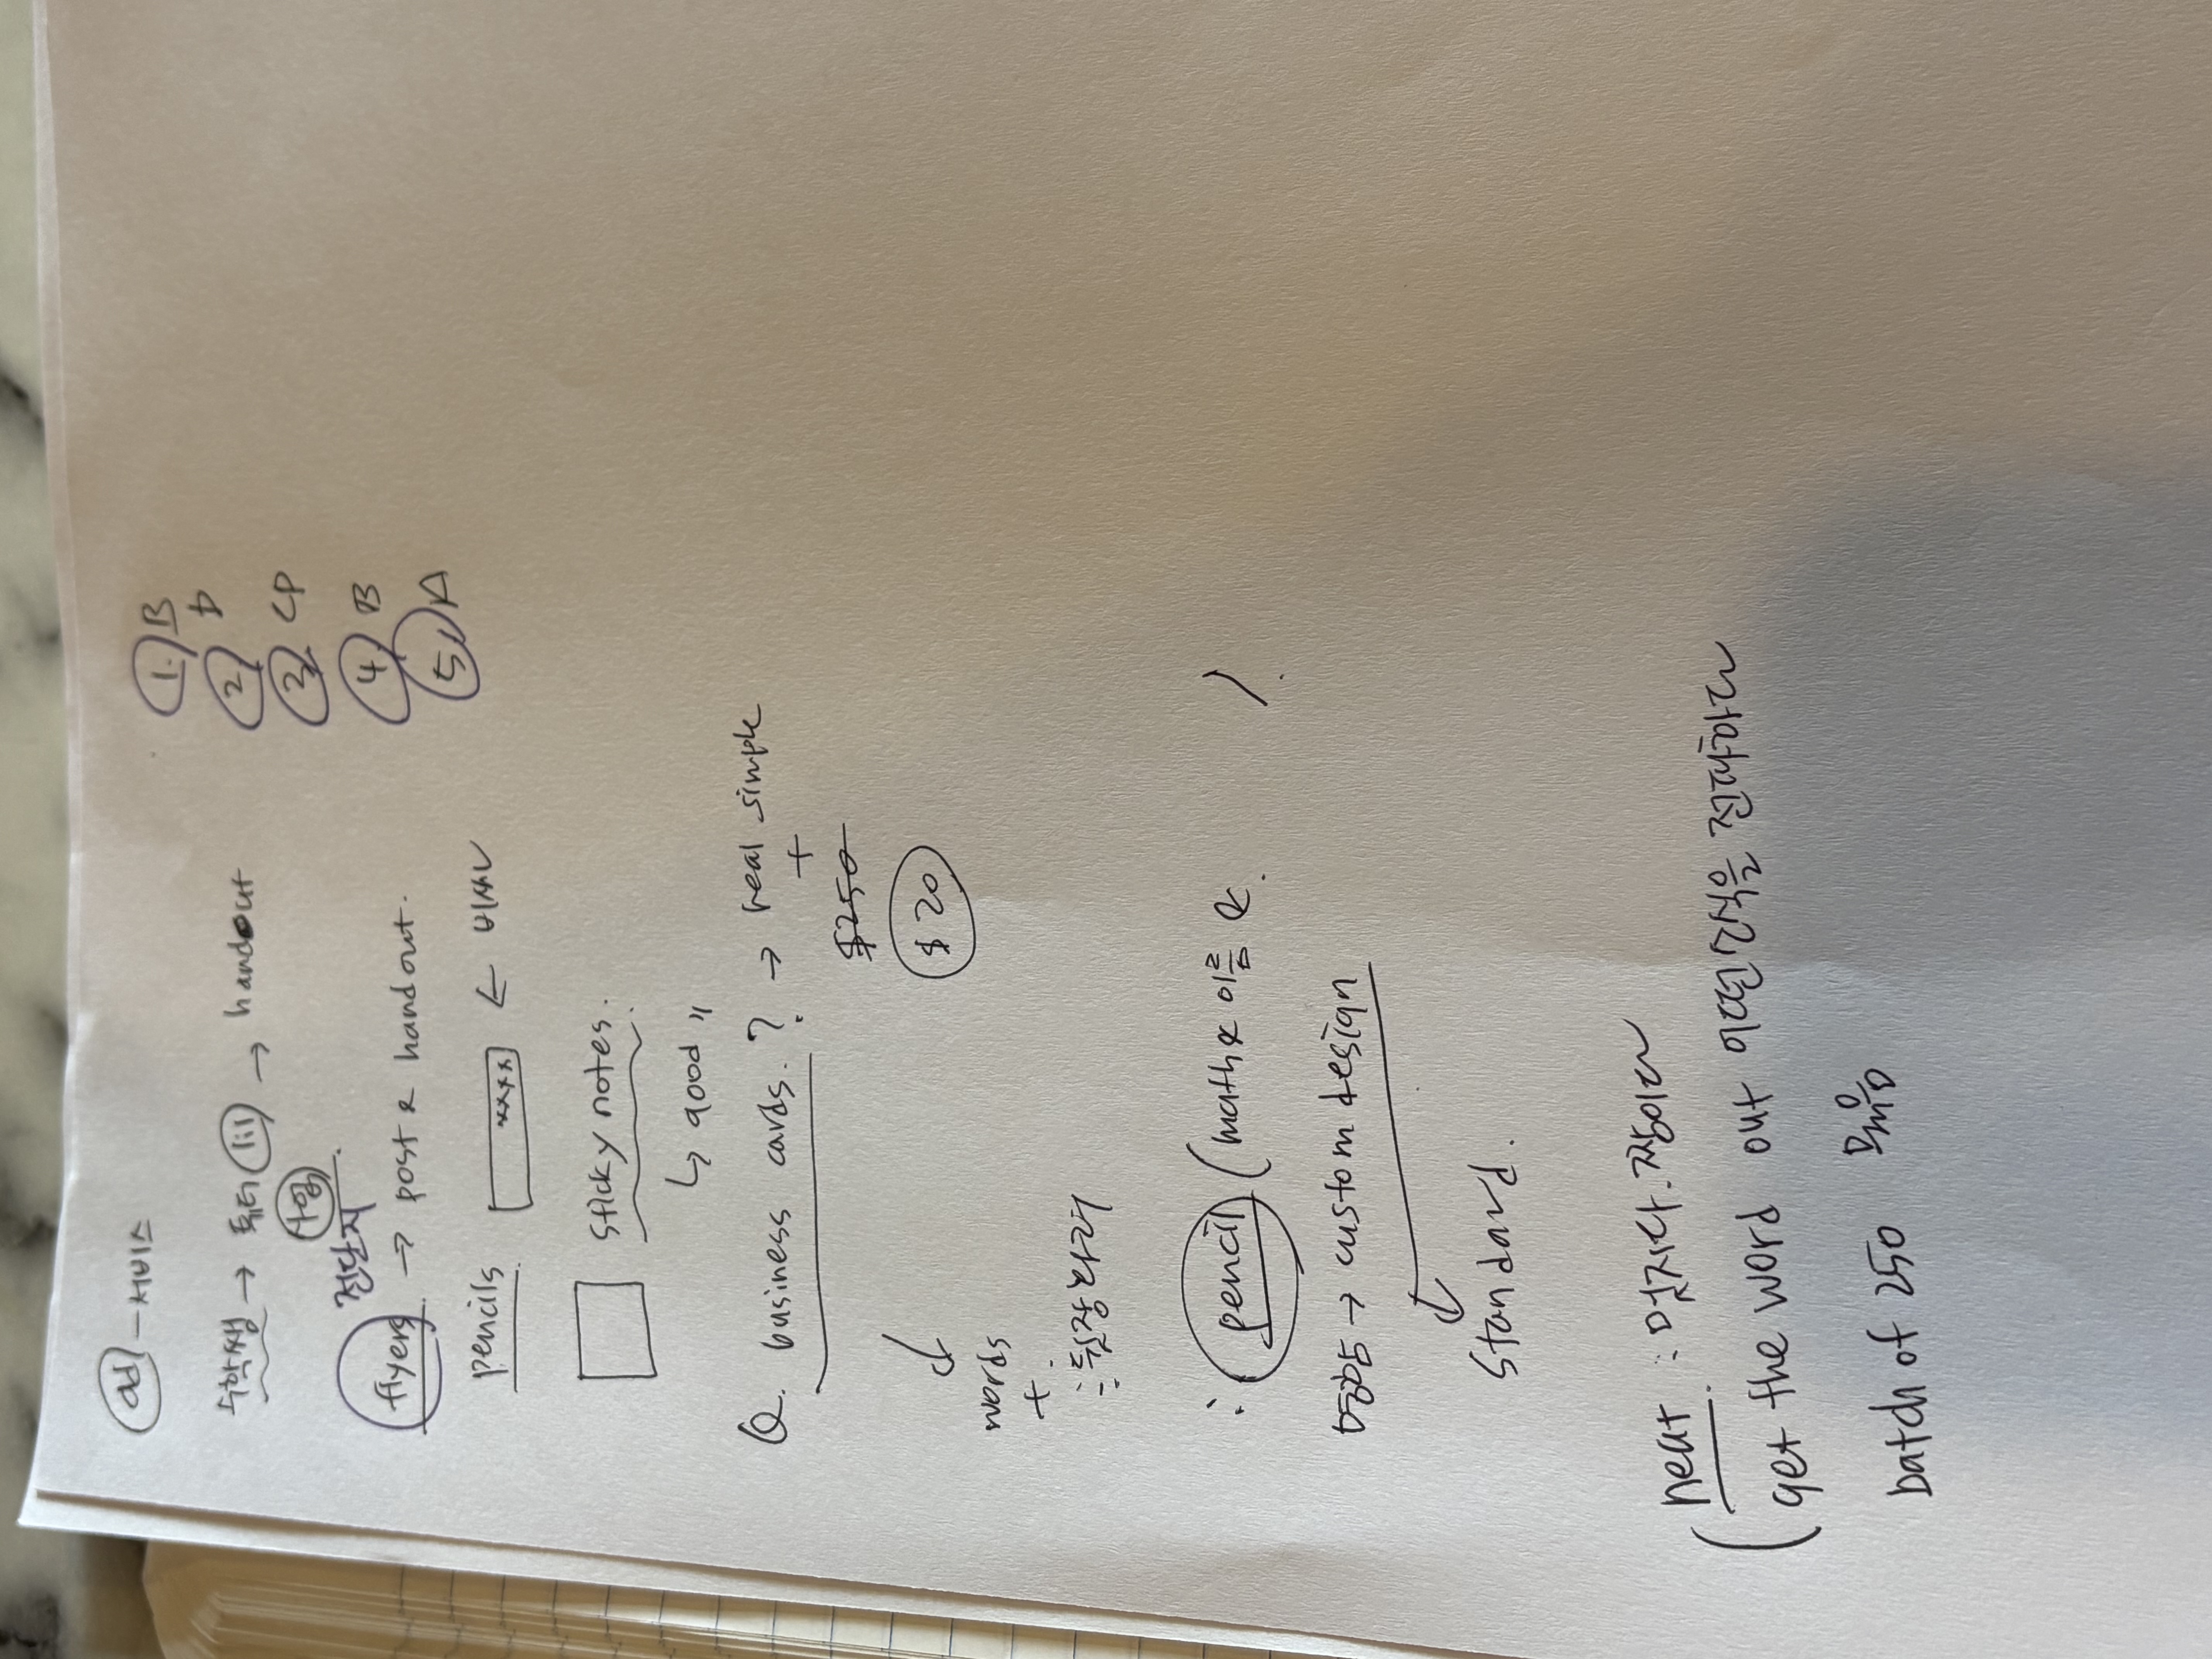 ad – 서비스
수학쌤 → 튜터 1:1 → handout
수업
전단지
flyers. → post & handout.
pencils. xxxx ← 비싸
sticky notes.
↳ good "
Q. business cards. ? → real simple
+
$250
$20
words
+
∴ : pencil (math & 이름 &. ).
→ custom design
standard.
neat : 멋지다.
(get the word out 이것(소식)을 전파하다
batch of 250 묶음
1. B
2 D
3 CP
4 B
5 A